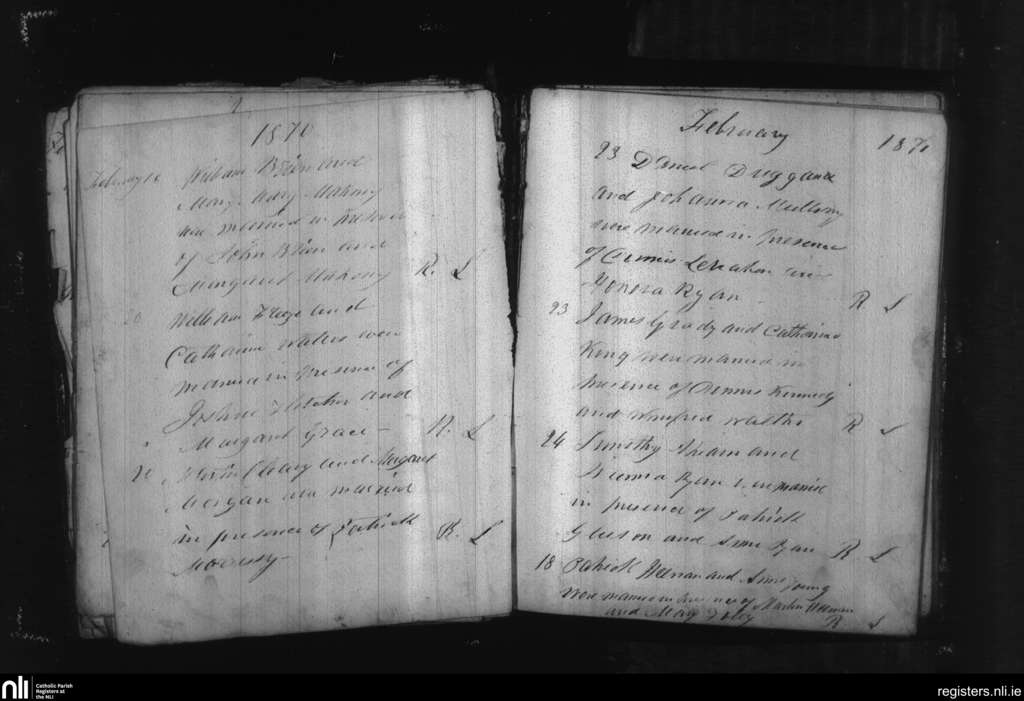 1870
February 16 William Brien and
Mary Mahony
were married in presence
of John Brien and
Margaret Mahony R. L
20 William and
Catharine Walters were
married in presence of
and
Margaret Grace R. L
20 Martin Cleary and Margaret
Morgan were married
in presence of Patrick
R. L
February 1870
23 Daniel Duggan
and Johanna
were married in presence
of Dennis Lenahan and
Honora Ryan R L
23 James Grady and Catharine
King were married in
presence of Dennis Kennedy
and Winifred R L
24 Timothy and
Ryan were married
in presence of Patrick
Gleeson and Anne Ryan R L
18 Patrick Heenan and Anne Young
were married in presence of Martin Heenan
and Mary R L
nli
Catholic Parish
Registers at
the NLI
registers.nli.ie